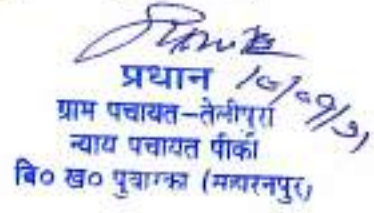 प्रधान
ग्राम पचायत-तेलीपुरा
न्याय पचायत पीकी
बि० ख० पुवारका (सहारनपुर)